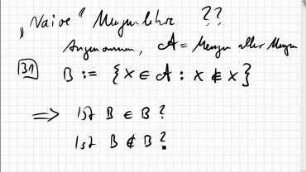 „Naive" Mengenlehre ??
Angenommen, A = Menge aller Mengen
31 B := {X ∈ A : X ∉ X}
⟹ Ist B ∈ B ?
Ist B ∉ B ?